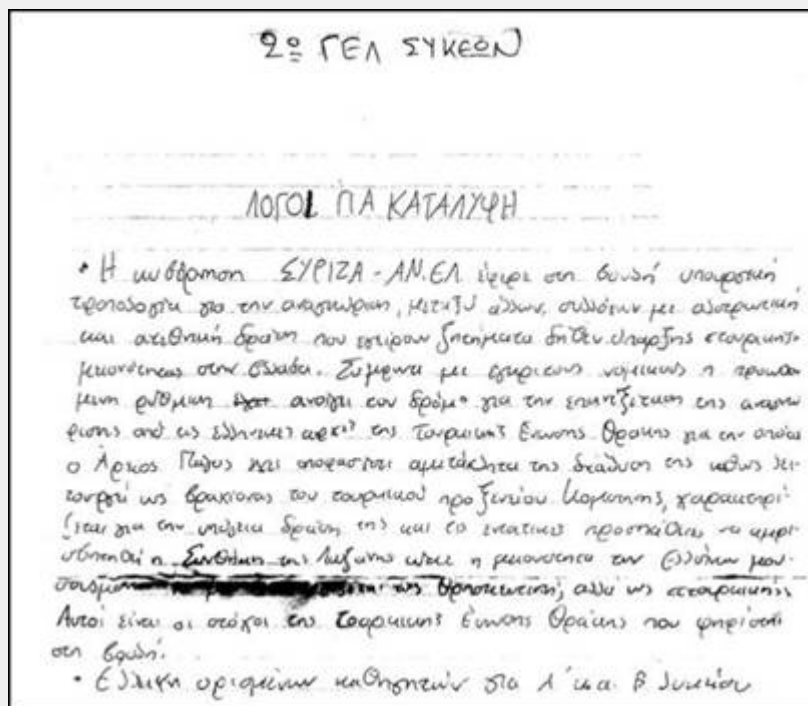 2º ΓΕΛ ΣΥΚΕΩΝ
ΛΟΓΟΙ ΓΙΑ ΚΑΤΑΛΥΨΗ
• Η κυβέρνηση ΣΥΡΙΖΑ - ΑΝ.ΕΛ έφερε στη βουλή υπουργική
τροπολογία για την αναγνώριση, μεταξύ άλλων, συλλόγων με
και δράση που εγείρουν ζητήματα δήθεν ύπαρξης τουρκικής
μειονότητας στην Ελλάδα. Σύμφωνα με έγκριτους νομικούς η
μενη ρύθμιση ανοίγει τον δρόμο για την της αναγνώ
ρισης από τις ελληνικές αρχές της Τουρκικής Ένωσης Θράκης για την οποία
ο Άρειος Πάγος έχει αποφασίσει αμετάκλητα της διάλυση της καθώς λει-
τουργεί ως βραχίονας του τουρκικού προξενείου Κομοτηνής, χαρακτηρί-
ζεται για την δράση της και τις προσπάθειες να αμφι-
σβητηθεί η Συνθήκη της Λωζάνης ώστε η μειονότητα των Ελλήνων μου-
σουλμάνων ως θρησκευτική, αλλά ως τουρκική.
Αυτοί είναι οι στόχοι της Τουρκικής Ένωσης Θράκης που ψηφίστηκε
στη βουλή.
• Έλλειψη ορισμένων καθηγητών για Α' και Β Λυκείου